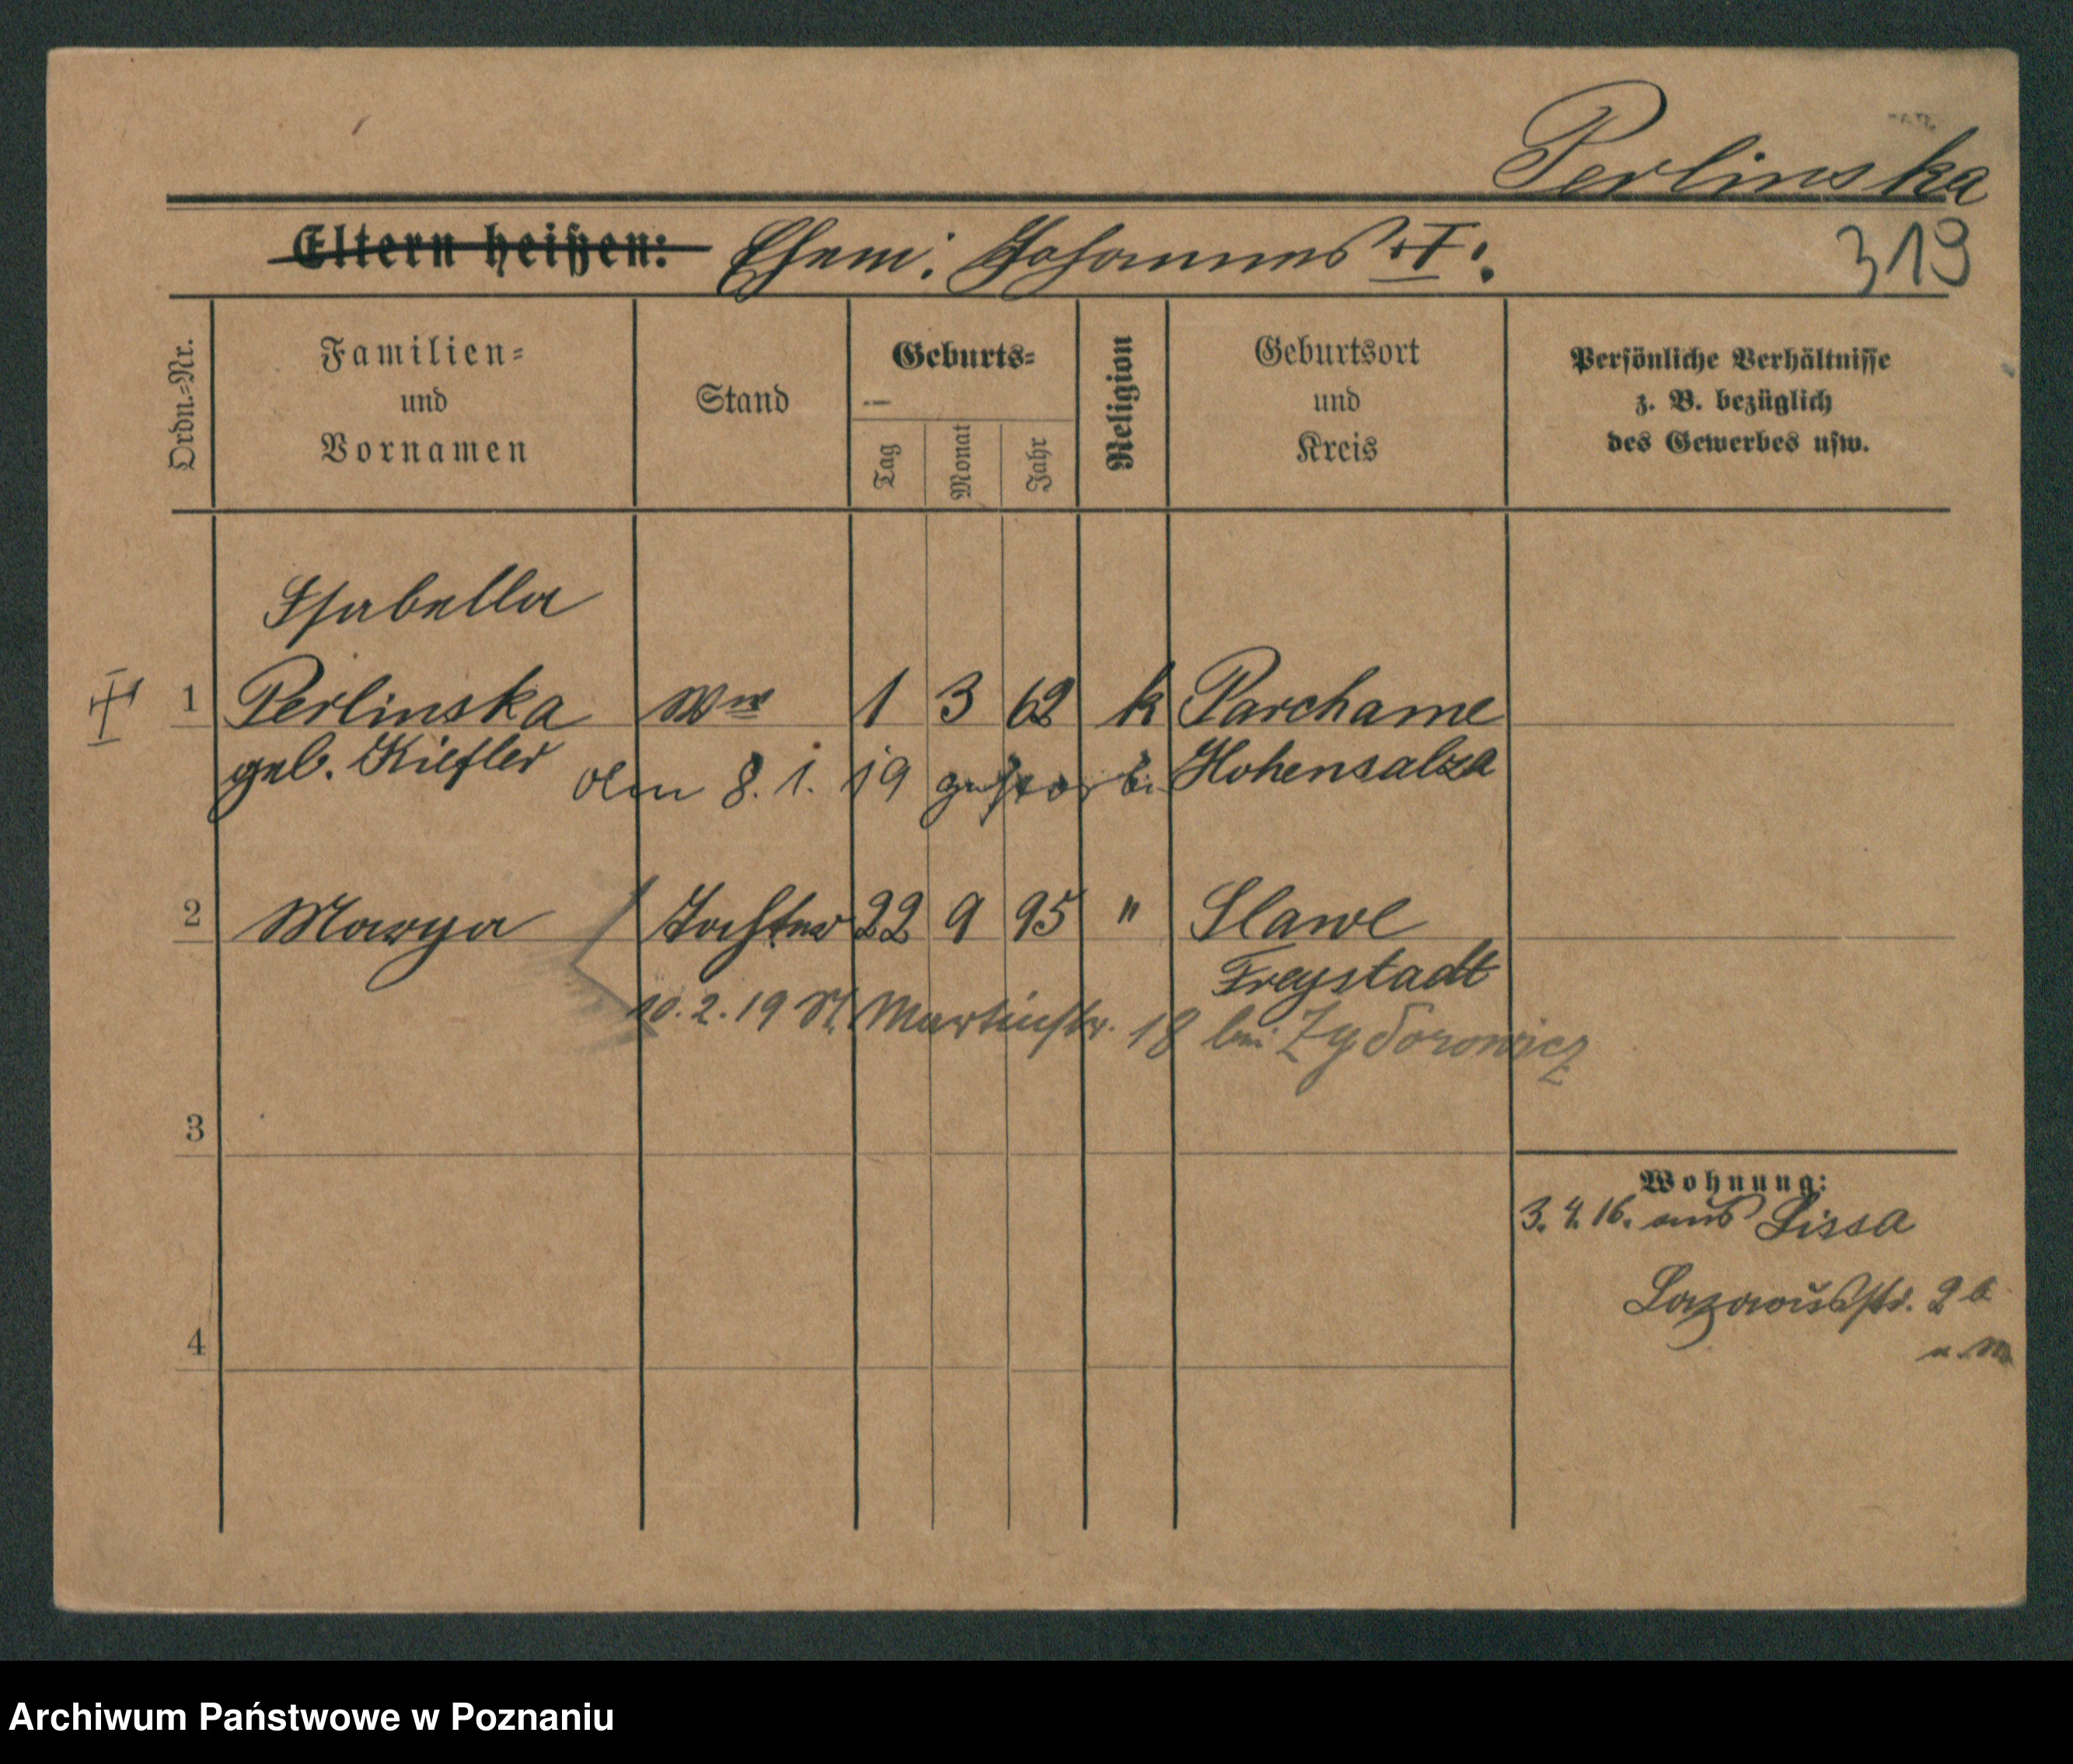 Perlinska
Eltern heißen: Ehem: Johannes †.
319
Ordn.=Nr.
Familien=
und
Vornamen
Stand
Geburts=
Tag
Monat
Jahr
Religion
Geburtsort
und
Kreis
Persönliche Verhältnisse
z. B. bezüglich
des Gewerbes usw.
Isabella
† 1 Perlinska Ww 1 3 62 k Parchame
geb. Kiefler Hohensalza
Am 8. 1. 19 gestorb.
2 Marya Tochter 22 9 95 " Slawe
Freystadt
10.2.19 St. Martinstr. 18 bei Zydorowicz
3
Wohnung:
3. 4. 16. aus Lissa
Lazarusstr. 2b
4
Archiwum Państwowe w Poznaniu